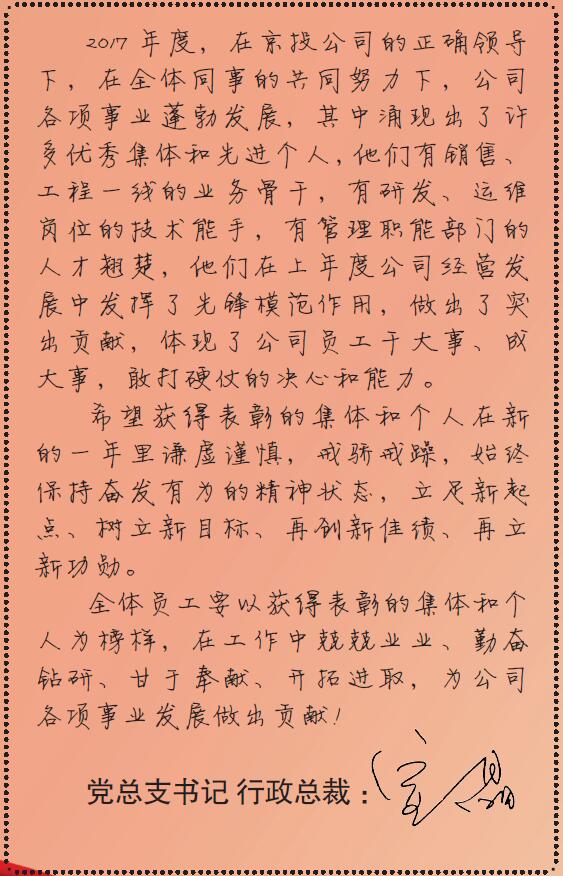 2017年度，在京投公司的正确领导
下，在全体同事的共同努力下，公司
各项事业蓬勃发展，其中涌现出了许
多优秀集体和先进个人，他们有销售、
工程一线的业务骨干，有研发、运维
岗位的技术能手，有管理职能部门的
人才翘楚，他们在上年度公司经营发
展中发挥了先锋模范作用，做出了突
出贡献，体现了公司员工干大事、成
大事，敢打硬仗的决心和能力。
希望获得表彰的集体和个人在新
的一年里谦虚谨慎，戒骄戒躁，始终
保持奋发有为的精神状态，立足新起
点、树立新目标、再创新佳绩、再立
新功勋。
全体员工要以获得表彰的集体和个
人为榜样，在工作中兢兢业业、勤奋
钻研、甘于奉献、开拓进取，为公司
各项事业发展做出贡献！
党总支书记 行政总裁：